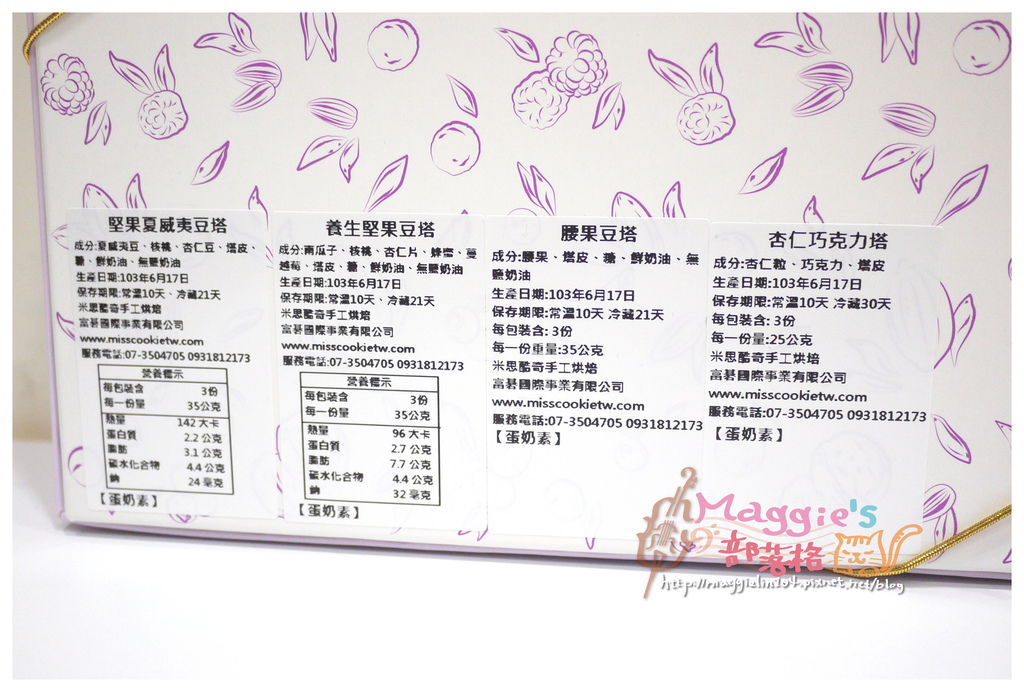 堅果夏威夷豆塔
成分:夏威夷豆、核桃、杏仁豆、塔皮、
糖、鮮奶油、無鹽奶油
生產日期:103年6月17日
保存期限:常溫10天、冷藏21天
米思酷奇手工烘焙
富碁國際事業有限公司
www.misscookietw.com
服務電話:07-3504705 0931812173
營養標示
每包裝含 3份
每一份量 35公克
熱量 142 大卡
蛋白質 2.2 公克
脂肪 3.1 公克
碳水化合物 4.4 公克
鈉 24 毫克
【蛋奶素】
養生堅果豆塔
成分:南瓜子、核桃、杏仁片、蜂蜜、蔓
越莓、塔皮、糖、鮮奶油、無鹽奶油
生產日期:103年6月17日
保存期限:常溫10天、冷藏21天
米思酷奇手工烘焙
富碁國際事業有限公司
www.misscookietw.com
服務電話:07-3504705 0931812173
營養標示
每包裝含 3份
每一份量 35公克
熱量 96 大卡
蛋白質 2.7 公克
脂肪 7.7 公克
碳水化合物 4.4 公克
鈉 32 毫克
【蛋奶素】
腰果豆塔
成分:腰果、塔皮、糖、鮮奶油、無
鹽奶油
生產日期:103年6月17日
保存期限:常溫10天 冷藏21天
每包裝含: 3份
每一份重量:35公克
米思酷奇手工烘焙
富碁國際事業有限公司
www.misscookietw.com
服務電話:07-3504705 0931812173
【蛋奶素】
杏仁巧克力塔
成分:杏仁粒、巧克力、塔皮
生產日期:103年6月17日
保存期限:常溫10天 冷藏30天
每包裝含: 3份
每一份量:25公克
米思酷奇手工烘焙
富碁國際事業有限公司
www.misscookietw.com
服務電話:07-3504705 0931812173
【蛋奶素】
Maggie's
部落格
http://maggielin204.pixnet.net/blog